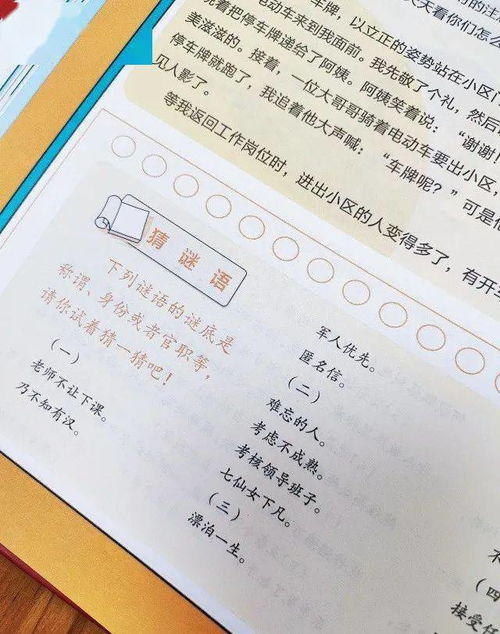 天看你们怎么
车牌，以立正的姿势站在小区门
电动车来到我面前。我先敬了个礼，然后
说着把停车牌递给了阿姨。阿姨笑着说：“谢谢
美滋滋的。接着，一位大哥哥骑着电动车要出小区
停车牌就跑了，我追着他大声喊：“车牌呢？”可是他
见人影了。
等我返回工作岗位时，进出小区的人变得多了，有开
猜谜语
下列谜语的谜底是
称谓、身份或者官职等，
请你试着猜一猜吧！
（一）
老师不让下课。
乃不知有汉。
军人优先。
匿名信。
（二）
难忘的人。
考虑不成熟。
考核领导班子。
七仙女下凡。
（三）
漂泊一生。
不
（四
接受任